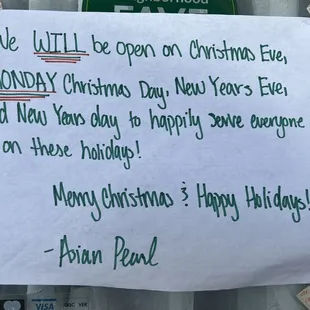 We WILL be open on Christmas Eve,
MONDAY Christmas Day, New Years Eve,
d New Years day to happily serve everyone
on these holidays!
Merry Christmas & Happy Holidays!
- Asian Pearl
VISA